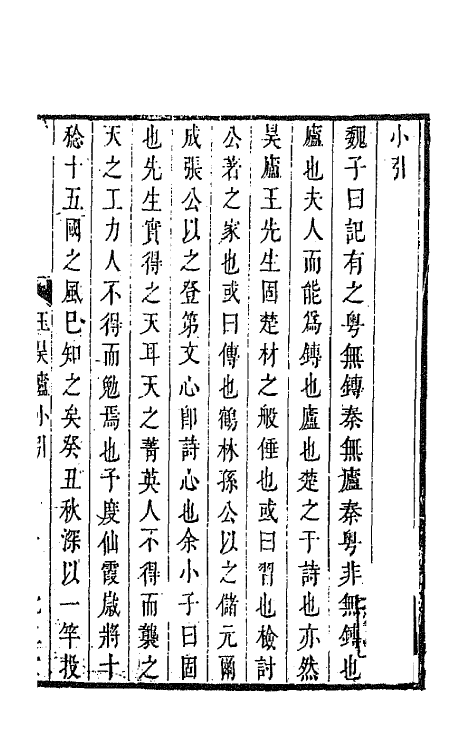 小引
魏子曰記有之粵無鏄秦無廬秦粵非無鏄也
廬也夫人而能為鏄也廬也楚之于詩也亦然
昊廬王先生固楚材之般倕也或曰習也檢討
公著之家也或曰傳也鶴林孫公以之儲元爾
成張公以之登第文心卽詩心也余小子曰固
也先生實得之天耳天之菁英人不得而襲之
天之工力人不得而勉焉也予度仙霞嵗將十
稔十五國之風巳知之矣癸丑秋深以一竿投
王昊廬小引